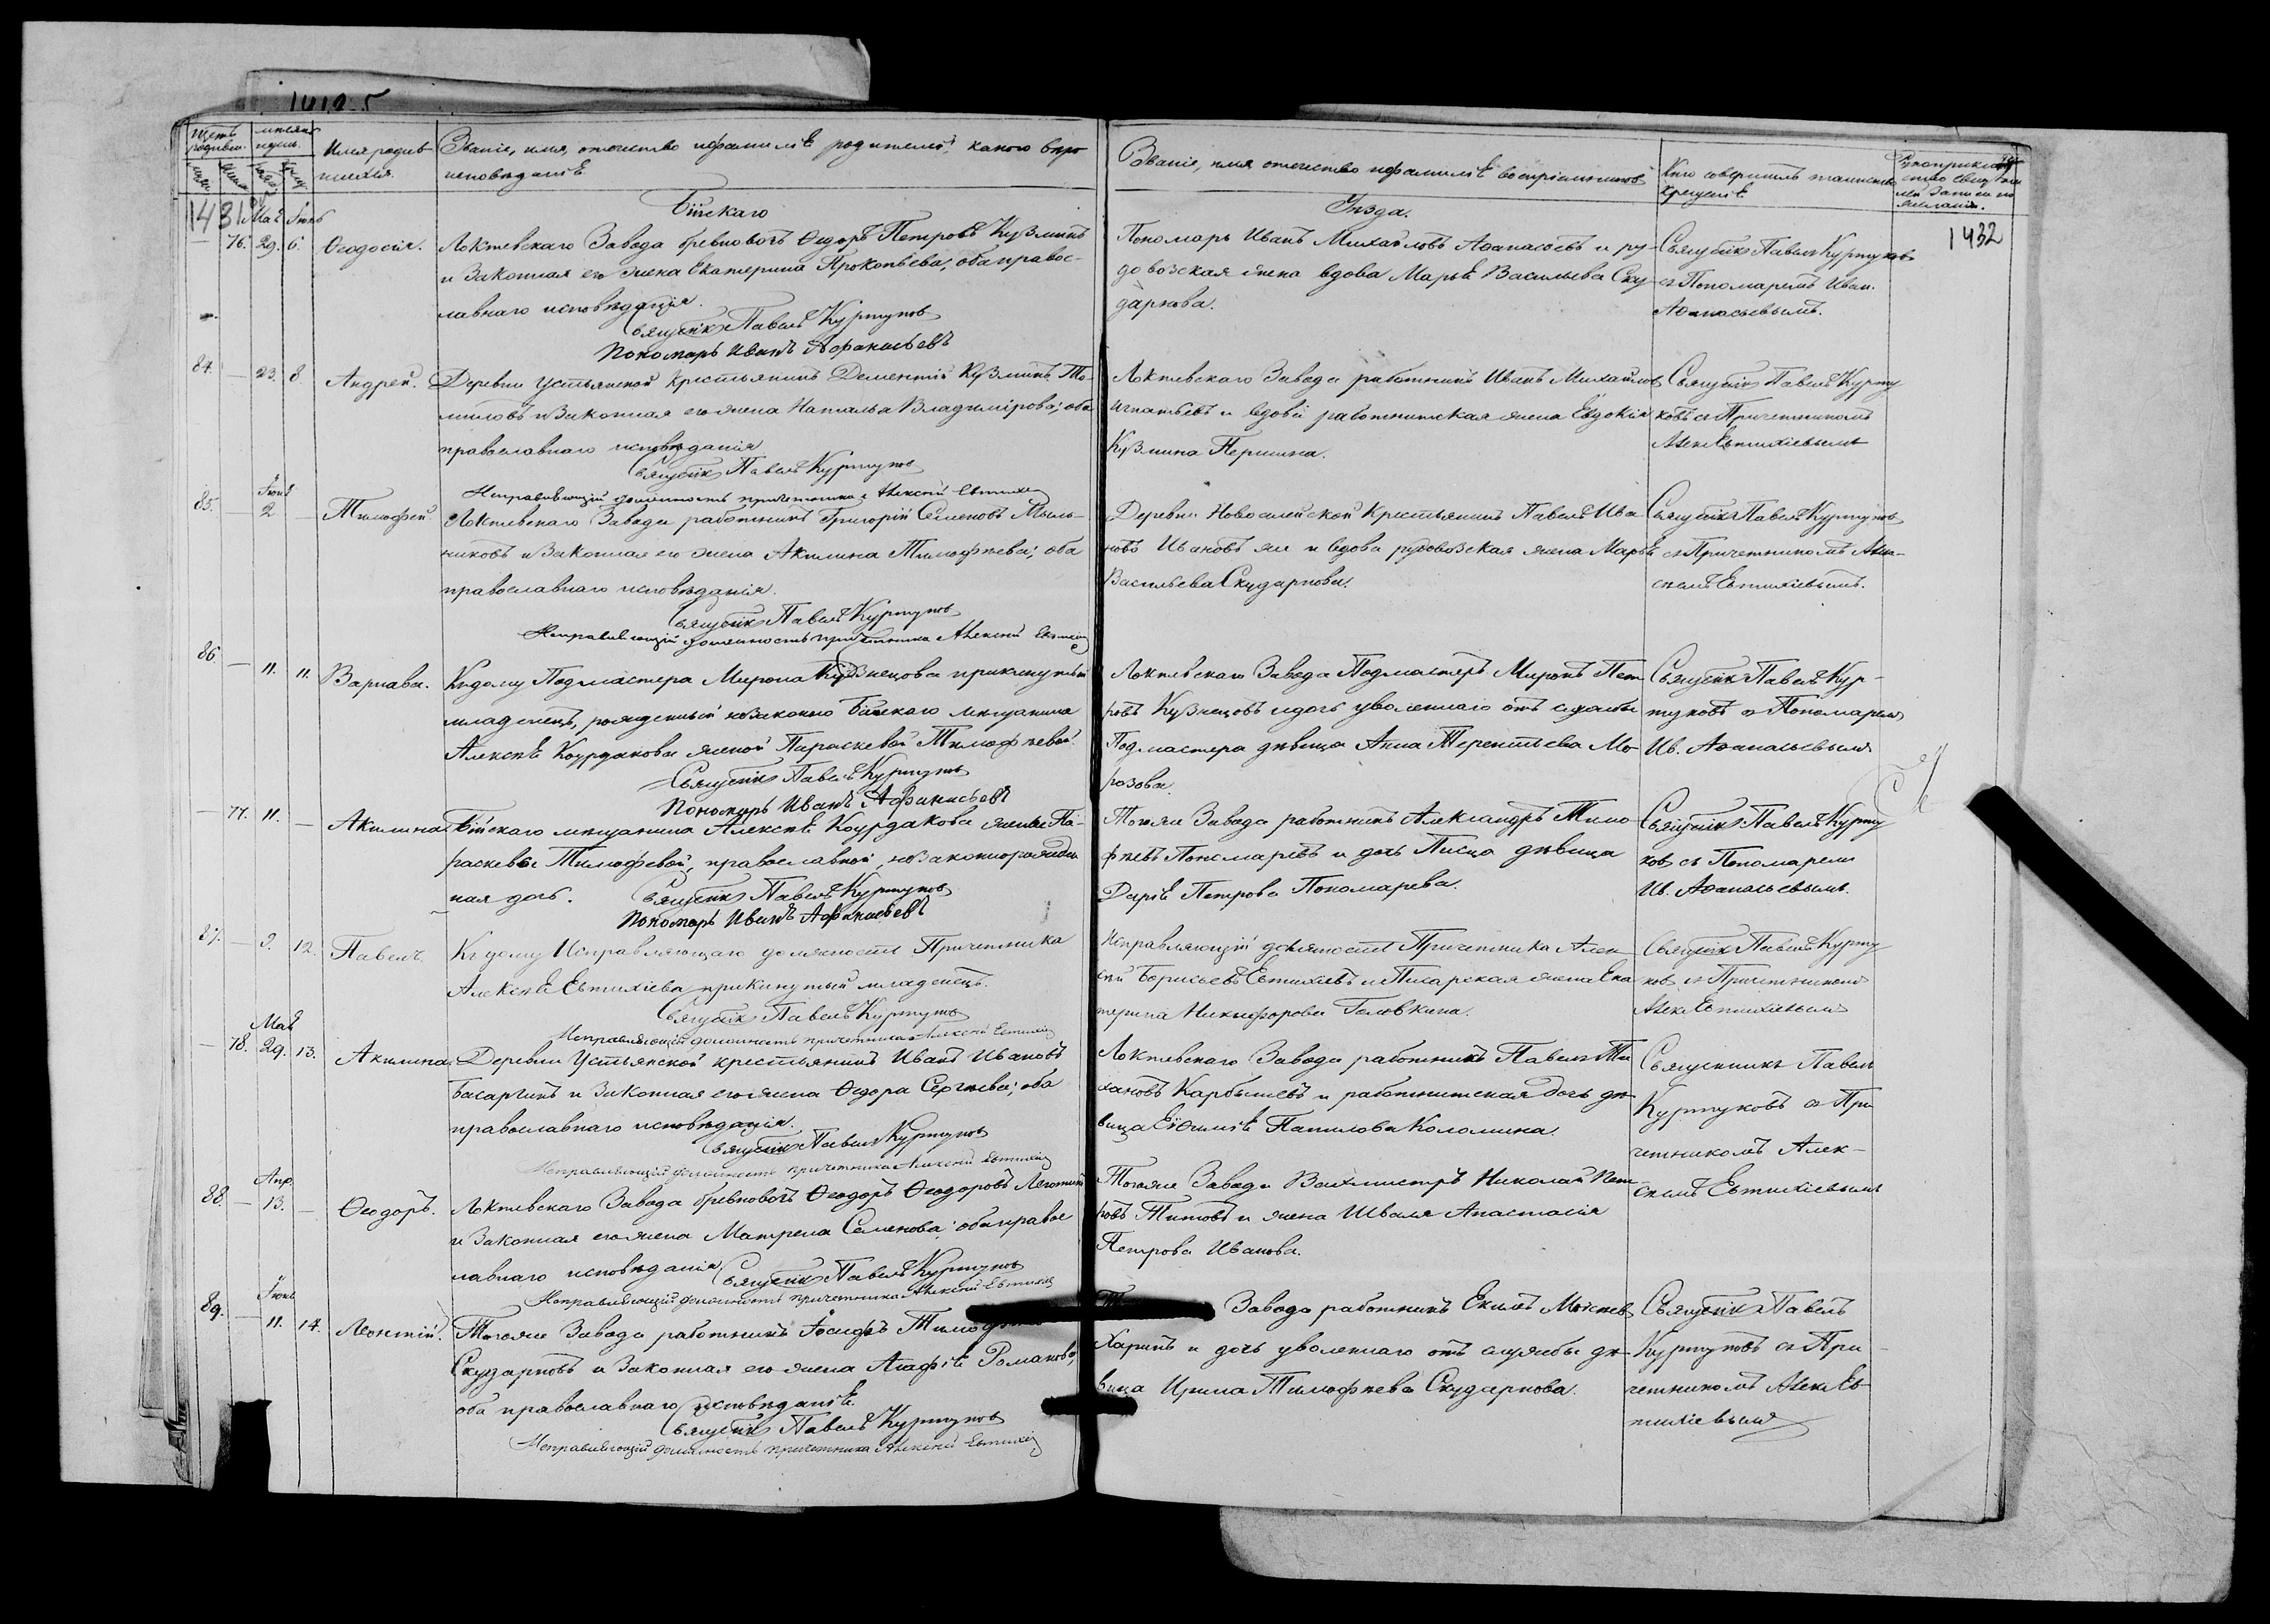 1431
1432
Щетъ родивш.
мѣсяцъ и день.
Имя родив-
шихся.
Званіе, имя, отечество и фамиліѣ родителей, какого вѣро
исповѣданіѣ
Званіе, имя отечество и фамиліѣ воспріемниковъ
Кто совершилъ таинство
крещеніѣ
Бійскаго
Уѣзда.
Маѣ Іюнѣ
76. 29. 6. Ѳеодосія.
Локтевскаго Завода бревновозъ Ѳедоръ Петровъ Кузминъ
и Законная его жена Екатерина Прокопьева, оба правос-
лавнаго исповѣданія.
Священникъ Павелъ Куртуковъ
Пономарь Иванъ Афанасьевъ
Пономарь Иванъ Михайловъ Аѳанасьевъ и ру-
довозская жена вдова Марьѣ Васильева Ску-
даркова.
Священникъ Павелъ Куртуковъ
съ Пономаремъ Иван.
Аѳанасьевымъ.
84. 23. 8 Андрей.
Деревни Устьянской Крестьянинъ Дементій Кузминъ То-
миловъ и Законная его жена Наталья Владимірова; оба
православнаго исповѣданія
Священникъ Павелъ Куртуковъ
Исправляющій должность причетника Алексѣй Евтихіев
Локтевскаго Завода работникъ Иванъ Михайловъ
Игнатьевъ и вдова работническая жена Евдокія
Кузмина Першина.
Священникъ Павелъ Курту
ковъ съ Причетникомъ
Алек. Евтихіевымъ
Іюнѣ
85. 2 Тимофей
Локтевскаго Завода работникъ Григорій Семеновъ Мыль-
никовъ и Законная его жена Акилина Тимофѣева; оба
православнаго исповѣданія.
Священникъ Павелъ Куртуковъ
Исправляющій должность причетника Алексѣй Евтихіев
Деревни Новосилейской Крестьянинъ Павелъ Ива
новъ Ивановъ же и вдова рудовозская жена Марьѣ
Васильева Скударнова.
Священникъ Павелъ Куртуковъ
съ Причетникомъ Алек-
сѣемъ Евтихіевымъ.
86. 11. 11. Варнава.
Къ дому Подмастера Мирона Кузнецова прикинутый
младенецъ, рожденный незаконно Бійскаго мѣщанина
Алексѣѣ Коурдакова женой Параскевой Тимофѣевой.
Священникъ Павелъ Куртуковъ
Пономарь Иванъ Афанасьевъ
Локтевскаго Завода Подмастеръ Миронъ Пет
ровъ Кузнецовъ и дочь уволеннаго отъ службы
Подмастера дѣвица Анна Терентьева Мо-
розова.
Священникъ Павелъ Кур-
туковъ съ Пономаремъ
Ив. Аѳанасьевымъ
77. 11. Акилина
Бійскаго мѣщанина Алексѣѣ Коурдакова жены Па-
раскевы Тимофѣевой, православной, незаконнорожден
ная дочь.
Священникъ Павелъ Куртуковъ
Пономарь Иванъ Афанасьевъ
Тогоже Завода работникъ Александръ Тимо
фѣевъ Пономаревъ и дочь Писца дѣвица
Дарьѣ Петрова Пономарева.
Священникъ Павелъ Курту
ковъ съ Пономаремъ
Ив. Аѳанасьевымъ.
87. 9. 12. Павелъ.
Къ дому Исправляющаго должность Причетника
Алексѣѣ Евтихіева прикинутый младенецъ.
Священникъ Павелъ Куртуковъ
Исправляющій должность причетника Алексѣй Евтихіев
Исправляющій должность Причетника Алек-
сѣй Борисьевъ Евтихіевъ и Писарская жена Ека
терина Никифорова Головкина.
Священникъ Павелъ Курту
ковъ съ Причетникомъ
Алек. Евтихіевымъ
Маѣ
78. 29. 13. Акилина.
Деревни Устьянской крестьянинъ Иванъ Ивановъ
Басаргинъ и Законная его жена Ѳедора Сергѣева; оба
православнаго исповѣданія.
Священникъ Павелъ Куртуковъ
Исправляющій должность причетника Алексѣй Евтихіев
Локтевскаго Завода работникъ Павелъ Ти
хановъ Карбышевъ и работническая дочь дѣ-
вица Еѳиміѣ Панилова Коломина.
Священникъ Павелъ
Куртуковъ съ При
четникомъ Алек-
сѣемъ Евтихіевымъ
Апр.
88. 13. Ѳеодоръ.
Локтевскаго Завода бревновозъ Ѳеодоръ Ѳеодоровъ
и Законная его жена Матрена Семенова; оба правос
лавнаго исповѣданія
Священникъ Павелъ Куртуковъ
Исправляющій должность причетника Алексѣй Евтихіев
Тогоже Завода Вахмистръ Николай Пет
ровъ Титовъ и жена Шваля Анастасія
Петрова Иванова.
Іюнь
89. 11. 14. Леонтій.
Тогоже Завода работникъ Іосифъ
Скударновъ и Законная его жена Агафіѣ Романова,
оба православнаго исповѣданіѣ.
Священникъ Павелъ Куртуковъ
Исправляющій должность причетника Алексѣй Евтихіев
Завода работникъ Екимъ Моисеев
Харинъ и дочь уволеннаго отъ службы дѣ-
вица Ирина Тимофѣева Скударнова.
Священникъ Павелъ
Куртуковъ съ При
четникомъ Алек. Ев-
тихіевымъ